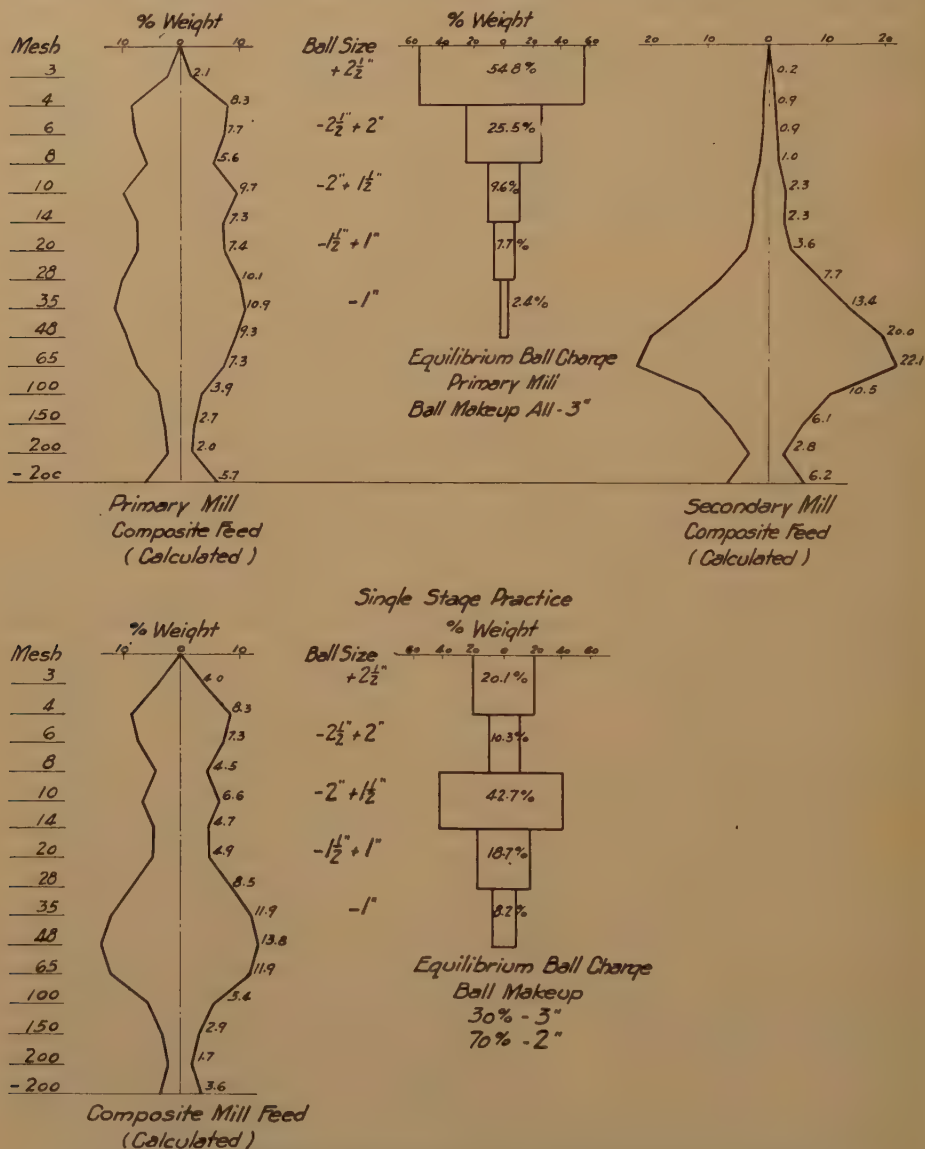 % Weight
10 0 10
Mesh
3
4
6
8
10
14
20
28
35
48
65
100
150
200
-200
2.1
8.3
7.7
5.6
9.7
7.3
7.4
10.1
10.9
9.3
7.3
3.9
2.7
2.0
5.7
Primary Mill
Composite Feed
(Calculated)
% Weight
60 40 20 0 20 40 60
Ball Size
+2½"
-2½" + 2"
-2" + 1½"
-1½" + 1"
-1"
54.8%
25.5%
9.6%
7.7%
2.4%
Equilibrium Ball Charge
Primary Mill
Ball Makeup All - 3"
20 10 0 10 20
0.2
0.9
0.9
1.0
2.3
2.3
3.6
7.7
13.4
20.0
22.1
10.5
6.1
2.8
6.2
Secondary Mill
Composite Feed
(Calculated)
Single Stage Practice
% Weight
10 0 10
Mesh
3
4
6
8
10
14
20
28
35
48
65
100
150
200
-200
4.0
8.3
7.3
4.5
6.6
4.7
4.9
8.5
11.9
13.8
11.9
5.4
2.9
1.7
3.6
Composite Mill Feed
(Calculated)
% Weight
60 40 20 0 20 40 60
Ball Size
+2½"
-2½" + 2"
-2" + 1½"
-1½" + 1"
-1"
20.1%
10.3%
42.7%
18.7%
8.2%
Equilibrium Ball Charge
Ball Makeup
30% - 3"
70% - 2"